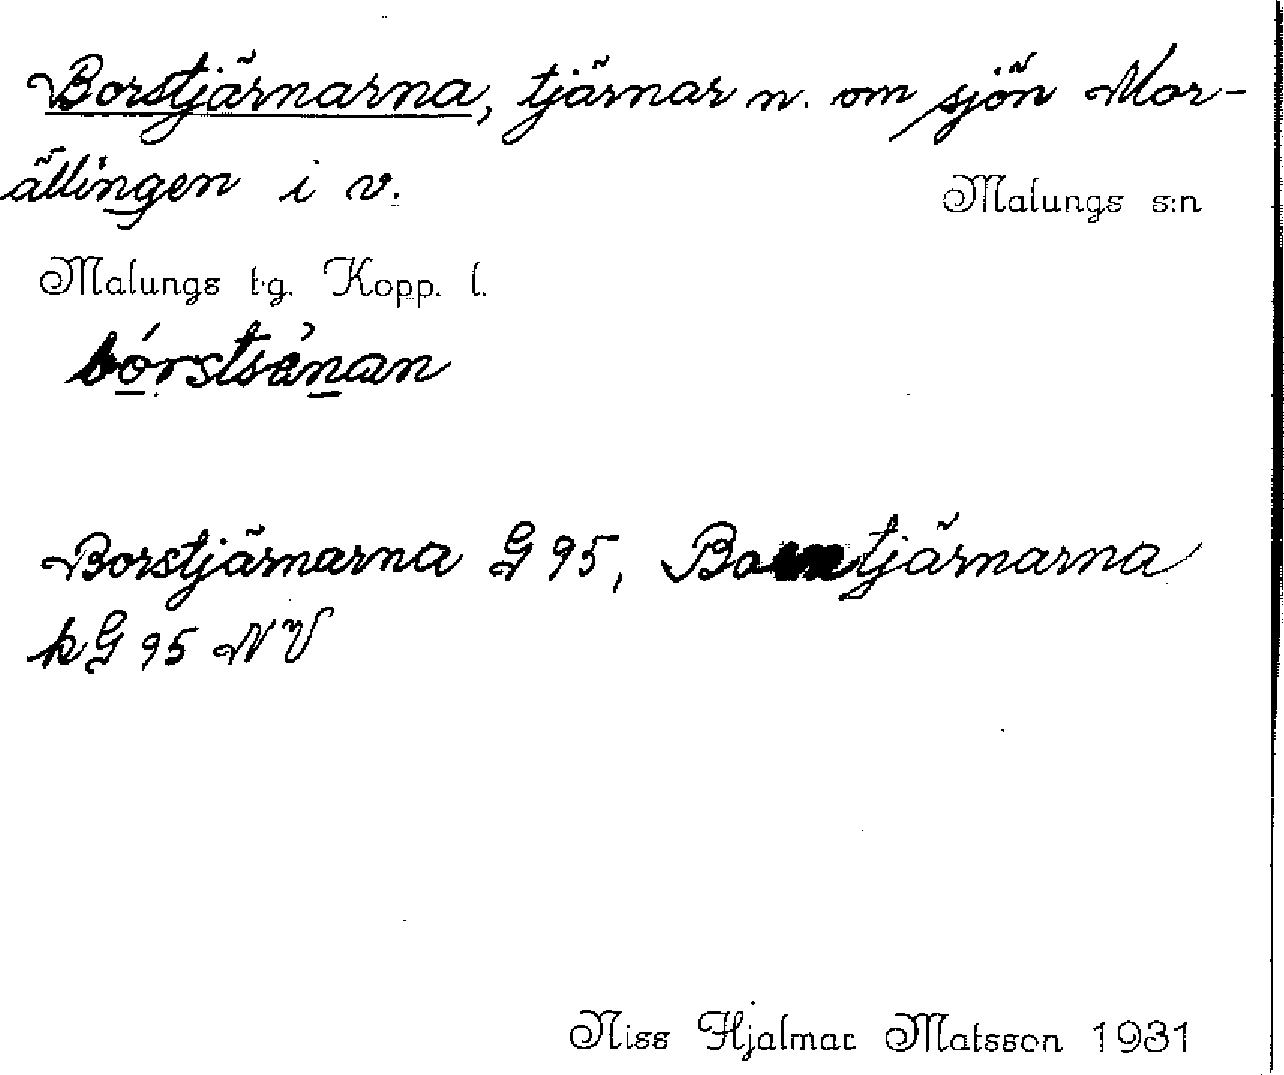 Borstjärnarna, tjärnar n. om sjön Mor-
ällingen i v.
Malungs s:n
Malungs tg. Kopp. l.
bórstsànan
Borstjärnarna G 95, tjärnarna
kG 95 NV
Niss Hjalmar Matsson 1931